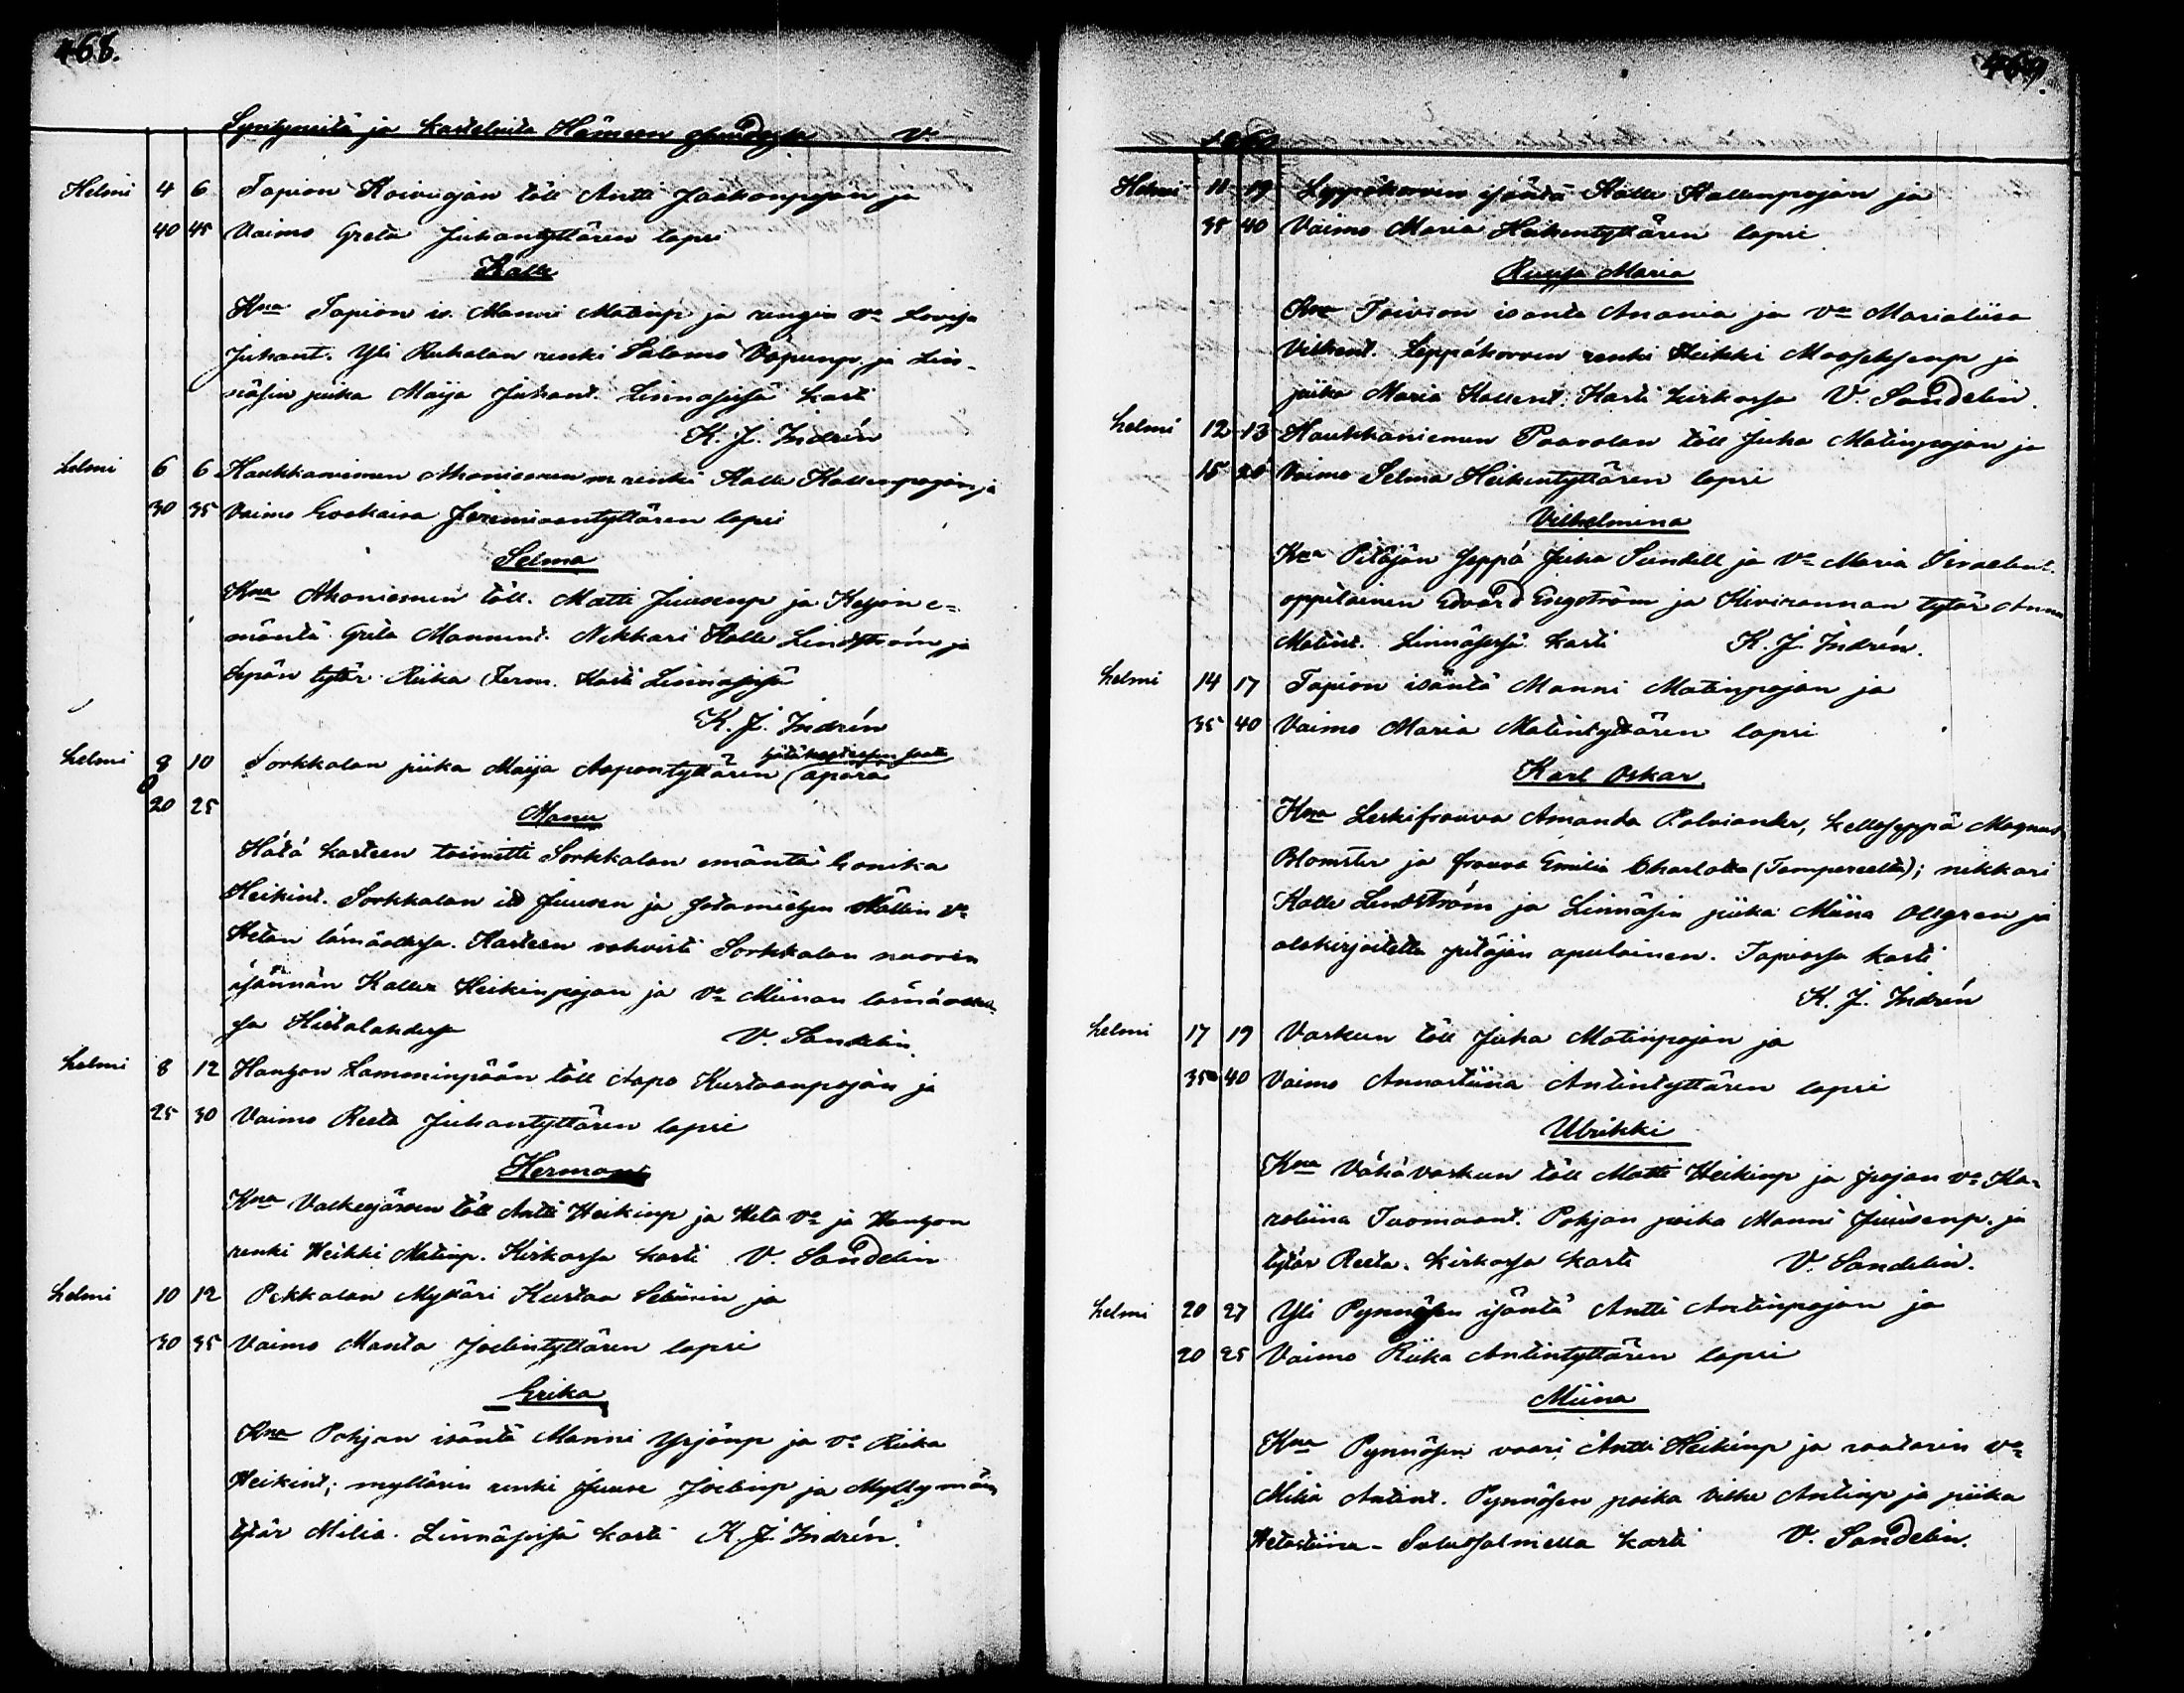 468.
Syntyneitä ja kasteluita Hämeen v.
Helmi 4 6 Tapion Koivuojan töll Antti Jaakonpojan ja
40 45 Vaimo Greta Juhantyttären lapsi
Kalle
Kna Tapion is. Manni Matinp ja rengin va Lovisa
Juhant. Yli Ruhalan renki Salomo Vapunp. ja Lin-
näsin piika Maija Juhant. Linnasissa kasti
K. J. Indrén
helmi 6 6 Haukkaniemen Ahoniemen m. renki Kalle Kallenpojan ja
30 35 Vaimo Evakaisa Jeremiaantyttären lapsi
Selma
Kna Ahoniemen töll. Matti Juusenp ja Keson e=
mäntä Greta Mannint. Nikkari Kalle Lindström ja
Sepän tytär Riika Ferm. Kasti Linnasissa
K. J. Indrén
helmi 8 10 Sorkkalan piika Maija Aapontyttären (äpärä
20 25
Manu
Hätä kasteen toimitti Sorkkalan emäntä Eerika
Heikint. Sorkkalan is Juusen ja sotamiehen Mällin va
Hetan läsnäollessa. Kasteen vahvisti Sorkkalan nuoren
isännän Kallen Heikinpojan ja va Miinan läsnäolles-
sa Hietalahdessa V. Sandelin.
helmi 8 12 Hangon Lamminpään töll Aapo Kustaanpojan ja
25 30 Vaimo Reeta Juhantyttären lapsi
Herman
Kna Valkeejärven töll Antti Heikinp ja Heta va ja Hangon
renki Heikki Matinp. Kirkossa kasti V. Sandelin
helmi 10 12 Pekkalan Mylläri Kustaa Seliinin ja
30 35 Vaimo Manta Joelintyttären lapsi
Erika
Kna Pohjan isäntä Manni Yrjönp ja va Riika
Heikint; myllärin renki Juuse Joelinp ja Myllymäen
tytär Milia. Linnäsissä kasti K. J. Indrén.
469.
1860
Helmi 11 19 Leppäkorven isäntä Kalle Kallenpojan ja
35 40 Vaimo Maria Heikintyttären lapsi
Ruusa Maria
Kna Toivion isäntä Anania ja va Marialiisa
Vilhent. Leppäkorven renki Heikki Mooseksenp ja
piika Maria Kallent. Kasti kirkossa V. Sandelin.
helmi 12 13 Haukkaniemen Paavolan töll Juha Matinpojan ja
15 20 Vaimo Selma Heikintyttären lapsi
Vilhelmina
Kna Pitäjän Seppä Juha Sundell ja va Maria Israelint.
oppilainen Edvard Engström ja Kivirannan tytär Anna
Matint. Linnäsissä kasti K. J. Indrén.
helmi 14 17 Tapion isäntä Manni Matinpojan ja
35 40 Vaimo Maria Matintyttären lapsi
Karl Oskar
Kna Leskifrouva Amanda Palviander, kelloseppä Magnus
Blomster ja frouva Emilia Charlotta (Tampereelta); nikkari
Kalle Lindström ja Linnäsin piika Miina Ollgren ja
alekirjoitettu pitäjän apulainen. Tapiossa kasti
K. J. Indrén
helmi 17 19 Vaskuun töll Juha Matinpojan ja
35 40 Vaimo Annastiina Antintyttären lapsi
Ulrikki
Kna Vähävaskuun töll Matti Heikinp ja pojan va Ka-
roliina Tuomaant. Pohjan poika Manni Juusenp. ja
tytär Reeta. Kirkossa kasti V. Sandelin.
helmi 20 27 Yli Pynnösen isäntä Antti Antinpojan ja
20 25 Vaimo Riika Antintyttären lapsi
Miina
Kna Pynnösen vaari Antti Heikinp ja raatarin va
Milia Antint. Pynnösen poika Vilhe Antinp ja piika
Hetastiina - Salussalmella kasti V. Sandelin.